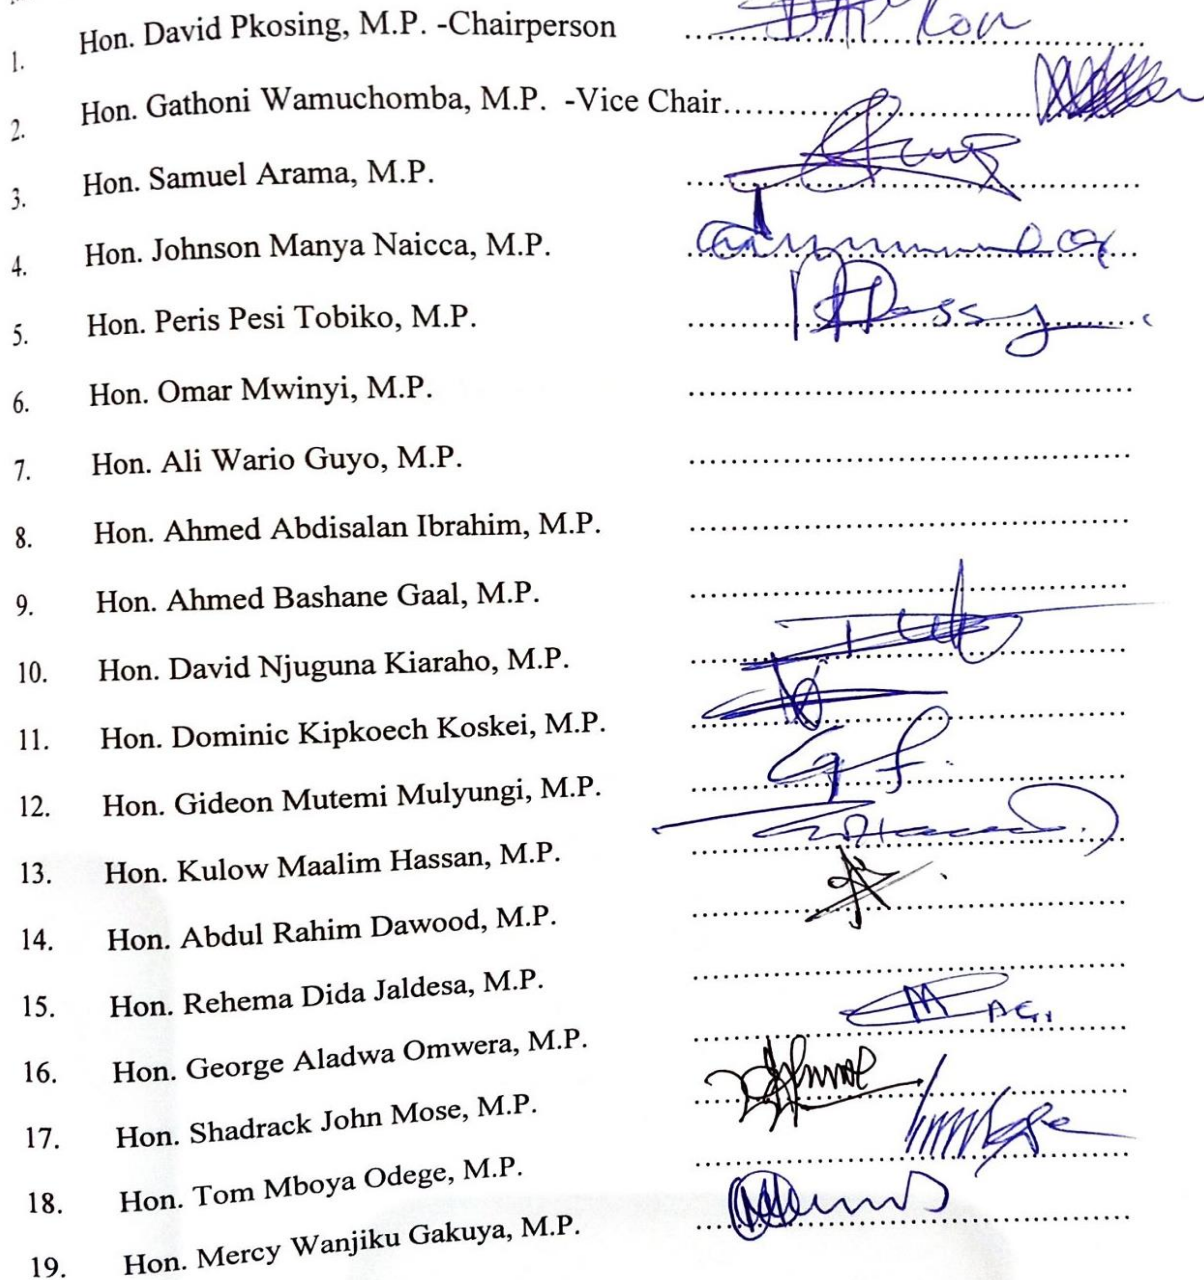 1. Hon. David Pkosing, M.P. -Chairperson ................
2. Hon. Gathoni Wamuchomba, M.P. -Vice Chair................
3. Hon. Samuel Arama, M.P. ................
4. Hon. Johnson Manya Naicca, M.P. ................
5. Hon. Peris Pesi Tobiko, M.P. ................
6. Hon. Omar Mwinyi, M.P. ................
7. Hon. Ali Wario Guyo, M.P. ................
8. Hon. Ahmed Abdisalan Ibrahim, M.P. ................
9. Hon. Ahmed Bashane Gaal, M.P. ................
10. Hon. David Njuguna Kiaraho, M.P. ................
11. Hon. Dominic Kipkoech Koskei, M.P. ................
12. Hon. Gideon Mutemi Mulyungi, M.P. ................
13. Hon. Kulow Maalim Hassan, M.P. ................
14. Hon. Abdul Rahim Dawood, M.P. ................
15. Hon. Rehema Dida Jaldesa, M.P. ................
16. Hon. George Aladwa Omwera, M.P. ................
17. Hon. Shadrack John Mose, M.P. ................
18. Hon. Tom Mboya Odege, M.P. ................
19. Hon. Mercy Wanjiku Gakuya, M.P. ................